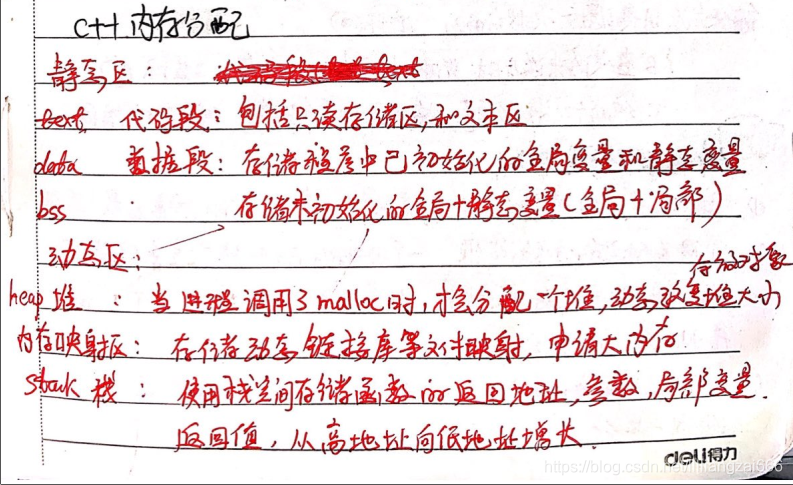 C++内存分配
静态区：
text 代码段：包括只读存储区,和文本区
data 数据段：存储程序中已初始化的全局变量和静态变量
bss 存储未初始化的全局+静态变量(全局+局部)
动态区：
存储对象
heap 堆：当进程调用了malloc时,才会分配一个堆,动态改变堆大小
内存映射区：存储动态链接库等文件映射,申请大内存
stack 栈：使用栈空间存储函数的返回地址,参数,局部变量.
返回值,从高地址向低地址增长.
deli得力